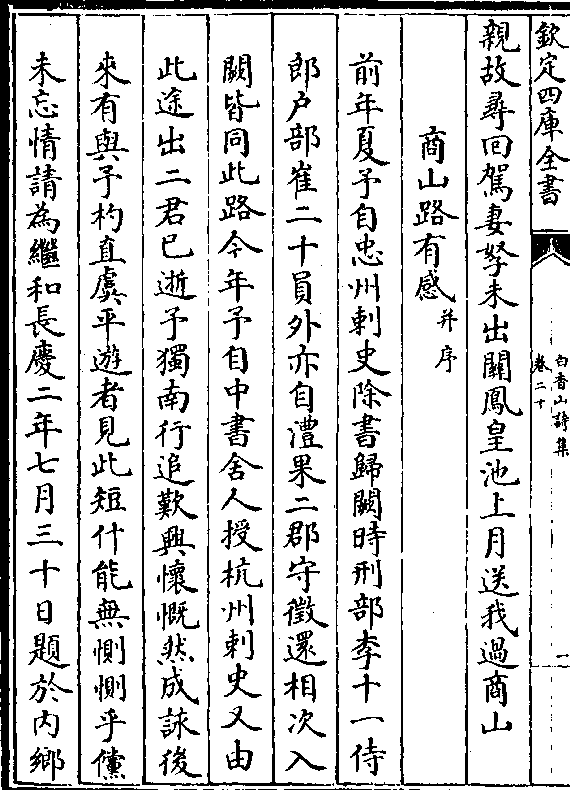 欽定四庫全書
白香山詩集
卷二十
一
親故尋回駕妻孥未出關鳳皇池上月送我過商山
商山路有感并序
前年夏予自忠州刺史除書歸闕時刑部李十一侍
郎戶部崔二十員外亦自澧果二郡守徵還相次入
闕皆同此路今年予自中書舍人授杭州刺史又由
此途出二君已逝予獨南行追歎興懷慨然成詠後
來有與予杓直虞平遊者見此短什能無惻惻乎儻
未忘情請為繼和長慶二年七月三十日題於內鄉